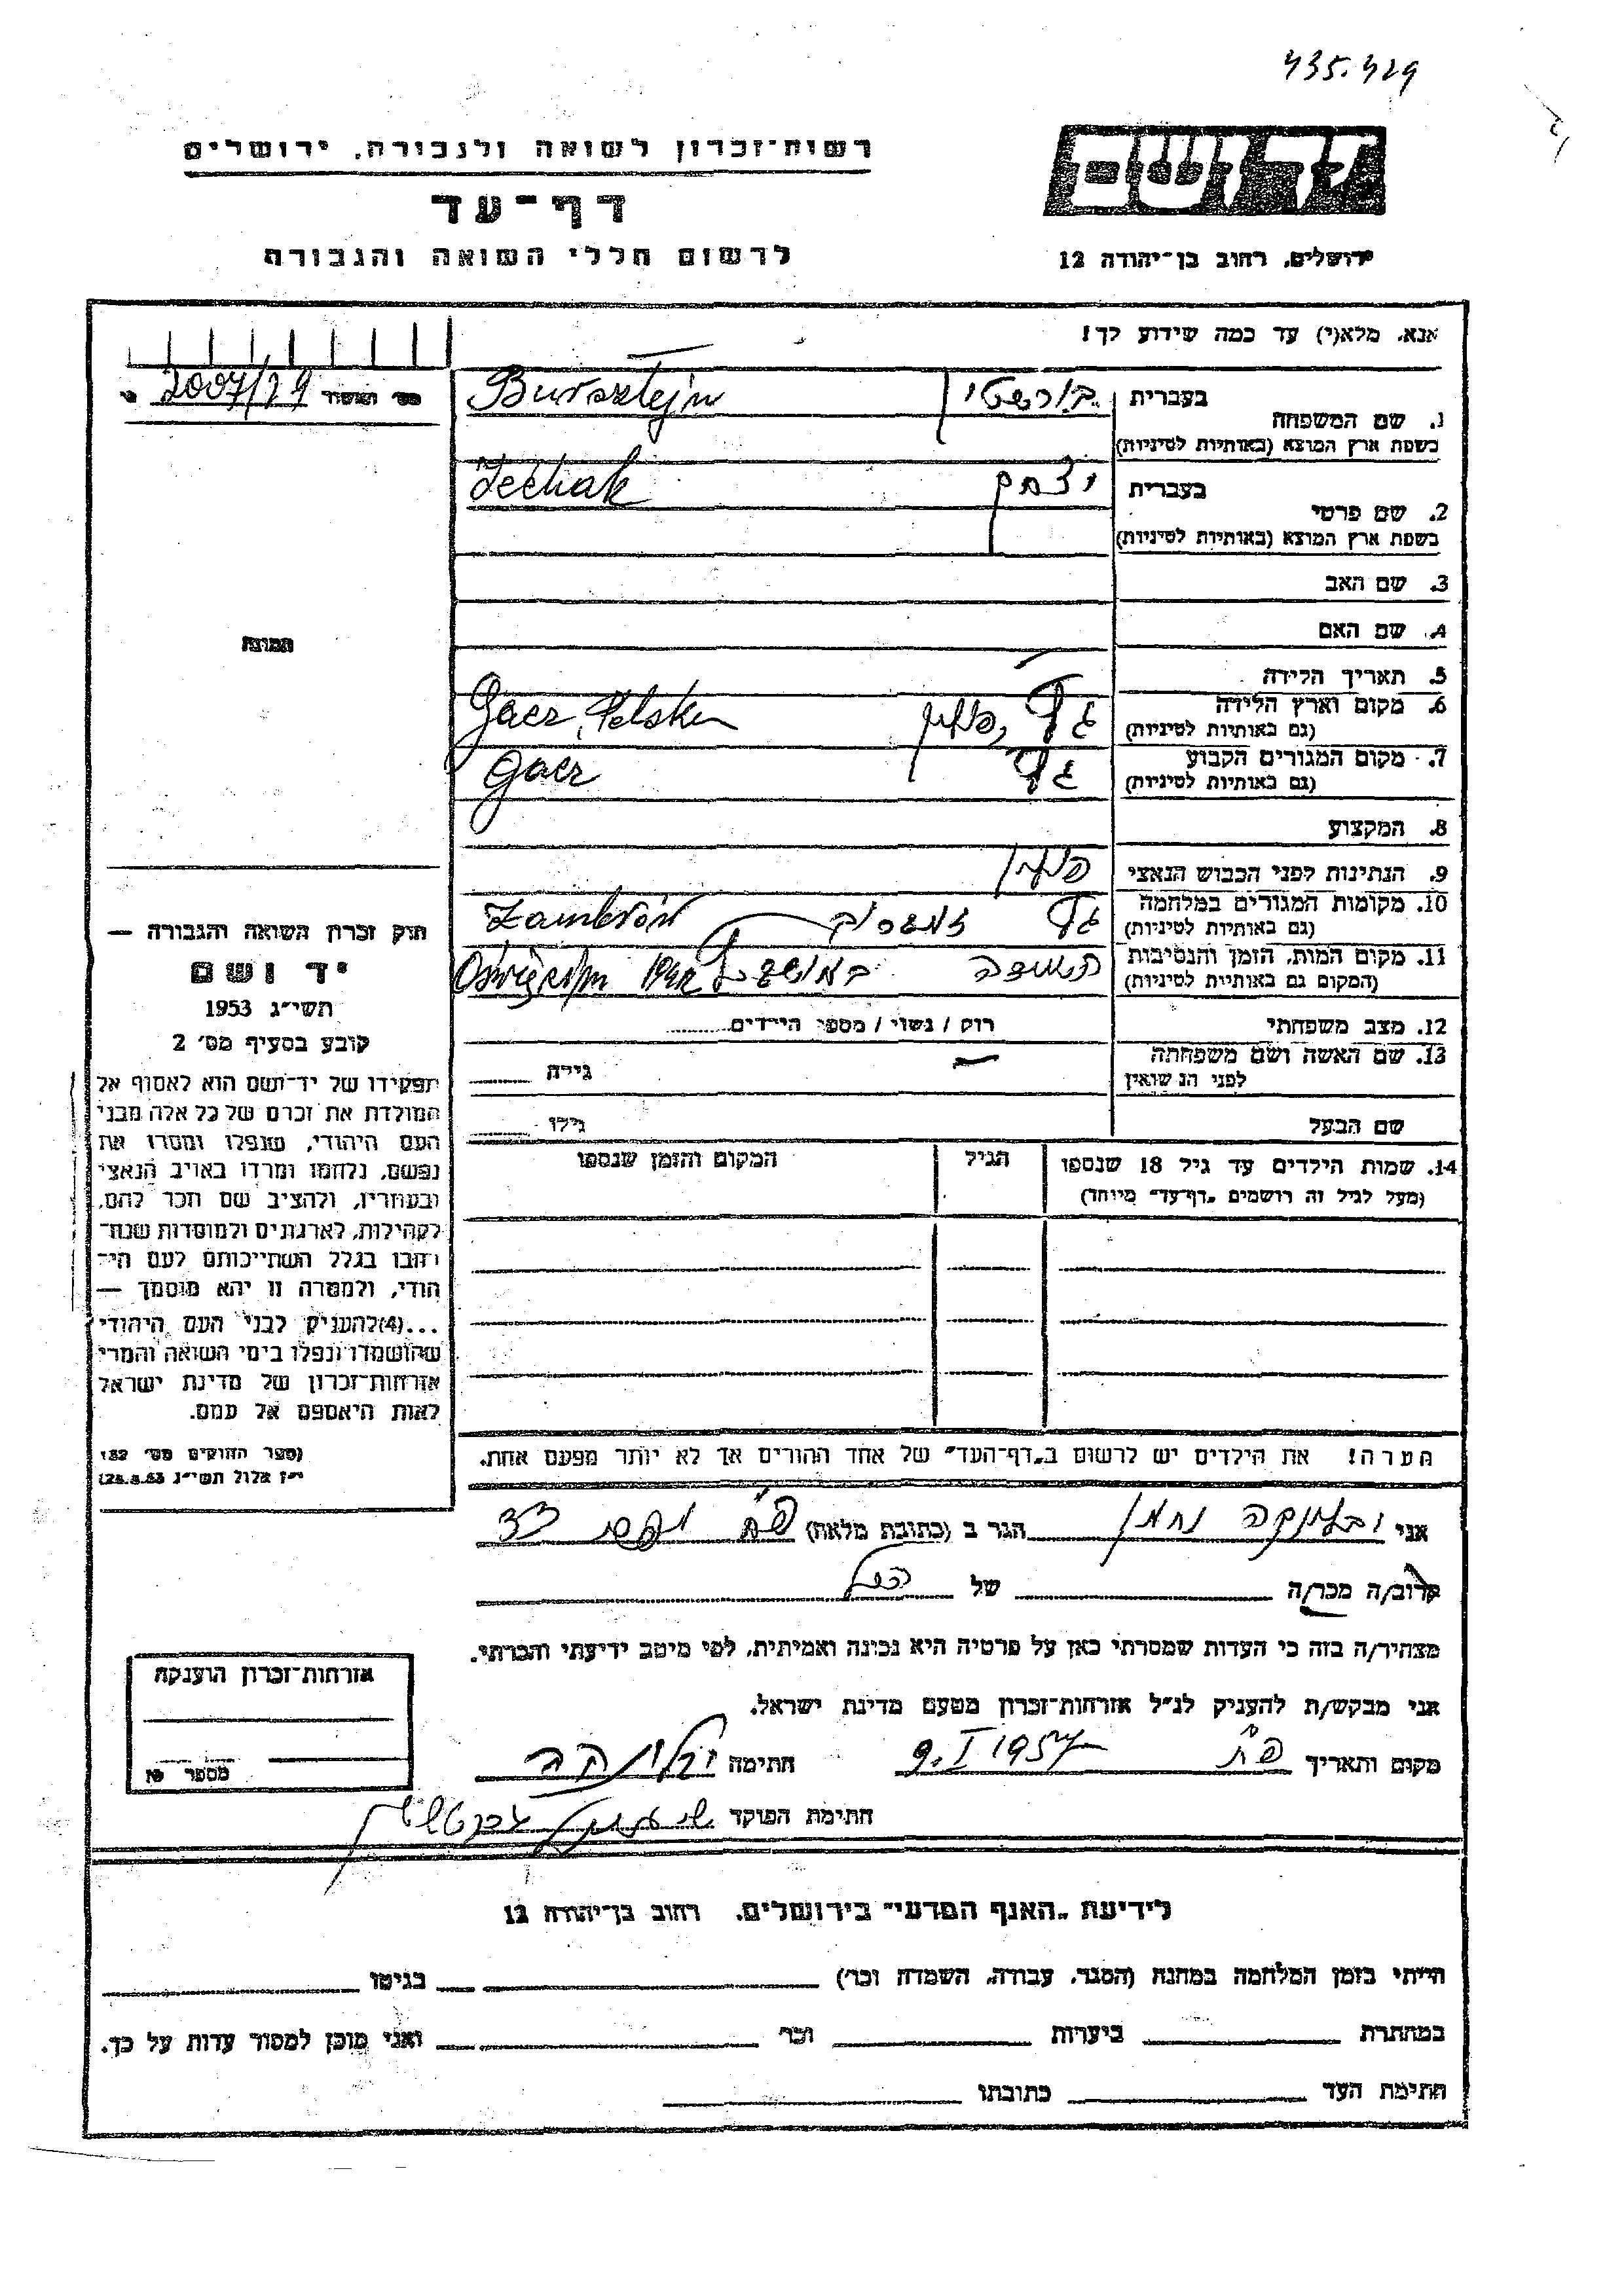 435.429
רשות-זכרון לשואה ולגבורה, ירושלים
דף-עד
לרשום חללי השואה והגבורה
ידושם
ירושלים, רחוב בן-יהודה 12
אנא, מלא(י) עד כמה שידוע לך!
1. שם המשפחה בעברית Bursztejn
בשפת ארץ המוצא (באותיות לטיניות)
2. שם פרטי בעברית יצחק Icchak
בשפת ארץ המוצא (באותיות לטיניות)
3. שם האב
4. שם האם
5. תאריך הלידה
6. מקום וארץ הלידה
(גם באותיות לטיניות) פולין
7. מקום המגורים הקבוע
(גם באותיות לטיניות)
8. המקצוע
9. הנתינות לפני הכבוש הנאצי פולין
10. מקומות המגורים במלחמה Zambrów
(גם באותיות לטיניות)
11. מקום המות, הזמן והנסיבות הושמדה Oświęcim
(המקום גם באותיות לטיניות)
12. מצב משפחתי רוק / נשוי / מספר הילדים
13. שם האשה ושם משפחתה — גילה
לפני הנשואין
שם הבעל גילו
14. שמות הילדים עד גיל 18 שנספו הגיל המקום והזמן שנספו
(מעל לגיל זה רושמים „דף-עד" מיוחד)
הערה! את הילדים יש לרשום ב„דף-העד" של אחד ההורים אך לא יותר מפעם אחת.
2007/29
תמונה
חוק זכרון השואה והגבורה —
יד ושם
תשי״ג 1953
קובע בסעיף מס׳ 2
תפקידו של יד-ושם הוא לאסוף אל
המולדת את זכרם של כל אלה מבני
העם היהודי, שנפלו ומסרו את
נפשם, נלחמו ומרדו באויב הנאצי
ובעוזריו, ולהציב שם וזכר להם,
לקהילות, לארגונים ולמוסדות שנח-
רבו בגלל השתייכותם לעם הי-
הודי, ולמטרה זו יהא מוסמך —
...(4) להעניק לבני העם היהודי
שהושמדו ונפלו בימי השואה והמרי
אזרחות-זכרון של מדינת ישראל
לאות היאספם אל עמם.
(ספר החוקים מס׳ 132
י״ז אלול תשי״ג 28.8.53)
אני נחמן הגר ב (כתובת מלאה)
קרוב/ה מכר/ה של
מצהיר/ה בזה כי העדות שמסרתי כאן על פרטיה היא נכונה ואמיתית, לפי מיטב ידיעתי והכרתי.
אני מבקש/ת להעניק לנ״ל אזרחות-זכרון מטעם מדינת ישראל.
מקום ותאריך פ״ת 9.I 1957 חתימה
חתימת הפוקד
אזרחות-זכרון הוענקה
מספר
לידיעת „האגף המדעי" בירושלים, רחוב בן-יהודה 12
הייתי בזמן המלחמה במחנה (הסגר, עבודה, השמדה וכו׳) בגיטו
במחתרת ביערות וכו׳ ואני מוכן למסור עדות על כך.
חתימת העד כתובתו